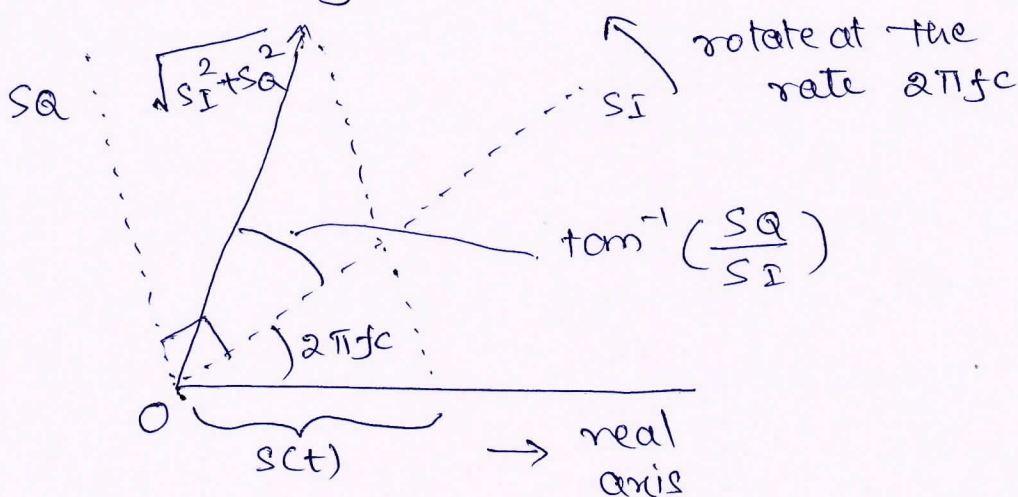 √SI²+SQ²
SQ
SI
rotate at the
rate 2πfc
tan⁻¹ (SQ/SI)
2πfc
O
S(t)
→ real
axis